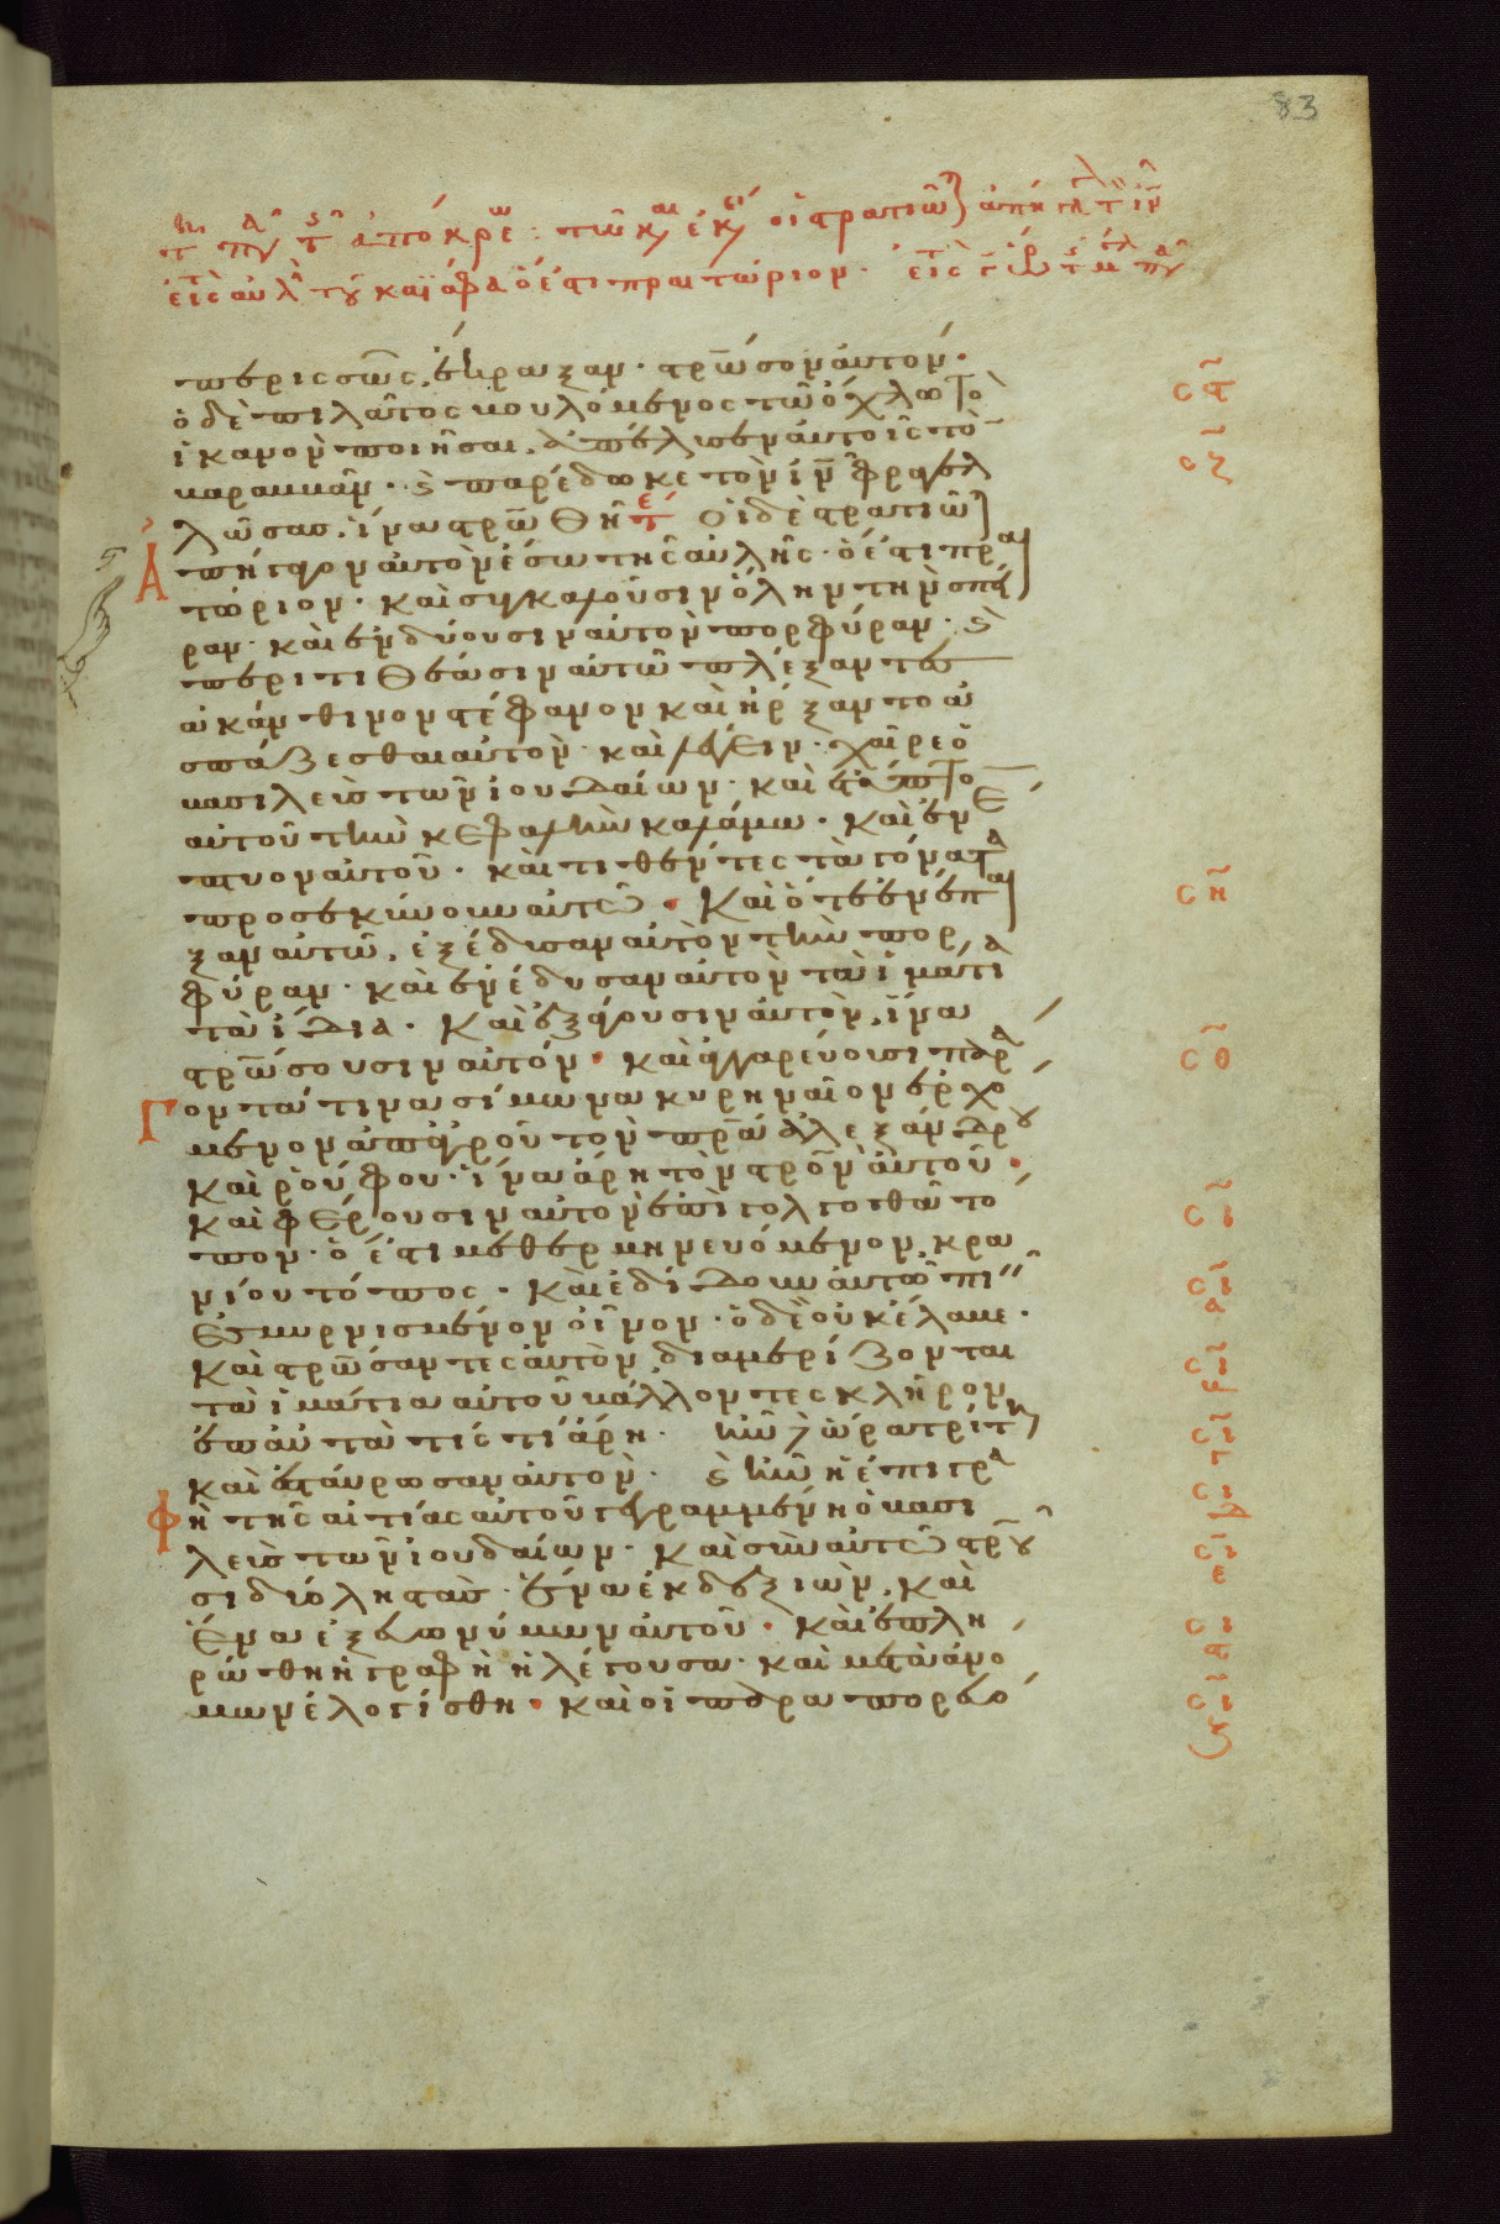 εἰς αυλ τοῦ καϊάφα ὅ ἐστι πραιτώριον·
περισσῶς ἔκραξαν· στρ̅ωσον αὐτόν·
ὁ δὲ πιλᾶτος βουλόμενος τῶ ὄχλω τὸ
ἱκανὸν ποιῆσαι, ἀπέλυσεν αὐτοῖς τὸ̅
βαραββᾶν· ϗ παρέδωκε τὸν ι̅ν̅ φραγελ
λώσας, ἵνα στρ̅ωθῆ Οἱ δὲ στρατιῶτ
Ἀπήγαγον αὐτὸν ἔσω τῆς αὐλῆς· ὅ ἐστι πραι
τώριον· καὶ συγκαλοῦσιν ὅλην τὴν σπεῖ
ραν· καὶ ἐνδύουσιν αὐτὸν πορφύραν· ϗ
περιτιθέασιν αὐτῶ πλέξαντες
ἀκάνθινον στέφανον καὶ ἤρξαντο ἀ
σπάζεσθαι αὐτὸν· καὶ λέγειν· χαῖρε ὁ
βασιλεὺς τῶν ἰουδαίων· καὶ ἔτυπτο̅
αὐτοῦ τὴν κεφαλὴν καλάμω· καὶ ἐνέ
πτυον αὐτοῦ· καὶ τιθέντες τὰ γόνατα
προσεκύνουν αὐτῶ· Καὶ ὅτε ἐνέπαι
ξαν αὐτῶ, ἐξέδυσαν αὐτὸν τὴν πορ
φύραν· καὶ ἐνέδυσαν αὐτὸν τὰ ἱμάτια
τὰ ἴδια· Καὶ ἐξάγουσιν αὐτὸν, ἵνα
στρ̅ώσουσιν αὐτόν· καὶ ἀγγαρεύουσι παρά
Γοντά τινα σίμωνα κυρηναῖον ἐρχό
μενον ἀπ' ἀγροῦ τὸν πρ̅α ἀλεξάνδρου
καὶ ῥούφου· ἵνα ἄρη τὸν στρ̅ον αὐτοῦ·
καὶ φέρουσιν αὐτὸν ἐπὶ γολγοθᾶ τό
πον· ὅ ἐστι μεθερμηνευόμενον, κρα
νίου τόπος· καὶ ἐδίδουν αὐτῶ πιεῖν
ἐσμυρνισμένον οἶνον· ὁ δὲ οὐκ ἔλαβε·
καὶ στρ̅ώσαντες αὐτὸν διαμερίζονται
τὰ ἱμάτια αὐτοῦ βάλλοντες κλῆρον
ἐπ' αὐτὰ τίς τί ἄρη· ἦν δὲ ὥρα τρίτη
καὶ ἐσταύρωσαν αὐτὸν· ϗ ἦν ἡ ἐπιγρα
Φὴ τῆς αἰτίας αὐτοῦ γεγραμμένη ὁ βασι
λεὺς τῶν ἰουδαίων· καὶ σὺν αὐτῶ στρ̅οῦ
σι δύο ληστὰς· ἕνα ἐκ δεξιῶν, καὶ
ἕνα ἐξ εὐωνύμων αὐτοῦ· καὶ ἐπλη
ρώθη ἡ γραφὴ ἡ λέγουσα· καὶ μετὰ ἀνό
μων ἐλογίσθη· καὶ οἱ παραπορευό
83
σϛ
σζ
ση
σθ
σι
σια
σιβ
σιγ
σιδ
σιε
σιϛ
σιζ